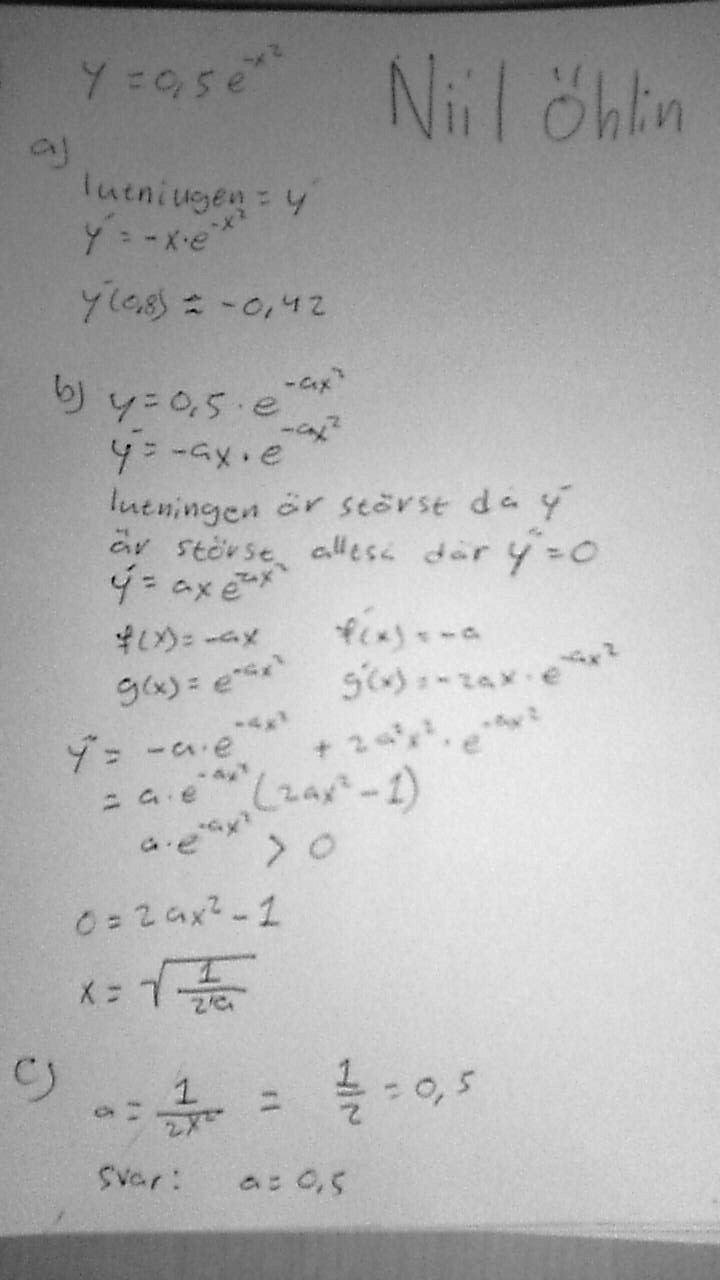 y = 0,5 e^-x²
Niil Öhlin
a)
lutningen = y'
y' = -x·e^-x²
y'(0,8) ≈ -0,42
b) y = 0,5 · e^-ax²
y' = -ax · e^-ax²
lutningen är störst då y'
är störst, alltså där y'' = 0
y' = axe^-ax²
f(x) = -ax f'(x) = -a
g(x) = e^-ax² g'(x) = -2ax · e^-ax²
y'' = -a·e^-ax² + 2a²x² · e^-ax²
= a·e^-ax² (2ax² - 1)
a·e^-ax² > 0
0 = 2ax² - 1
x = √(1/2a)
c)
a = 1/2x² = 1/2 = 0,5
svar: a = 0,5